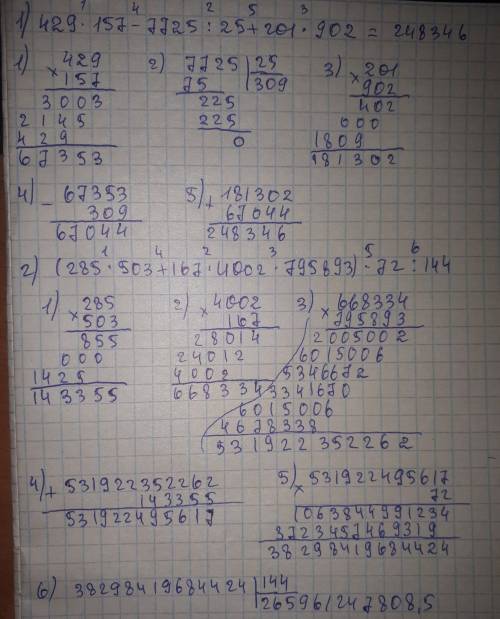 1) 429 · 157 - 7725 : 25 + 201 · 902 = 248346
1 4 2 5 3
1) 429
× 157
3003
2145
429
67353
2) 7725 | 25
75 309
225
225
0
3) 201
× 902
402
000
1809
181302
4) - 67353
309
67044
5) + 181302
67044
248346
2) (285 · 503 + 167 · 4002 · 795893) · 72 : 144
1 4 2 3 5 6
1) 285
× 503
855
000
1425
143355
2) 4002
× 167
28014
24012
4002
668334
3) 668334
× 795893
2005002
6015006
5346672
3341670
6015006
4678338
531922352262
4) + 531922352262
143355
531922495617
5) × 531922495617
72
1063844991234
3723457469319
38298419684424
6) 38298419684424 | 144
265961247808,5